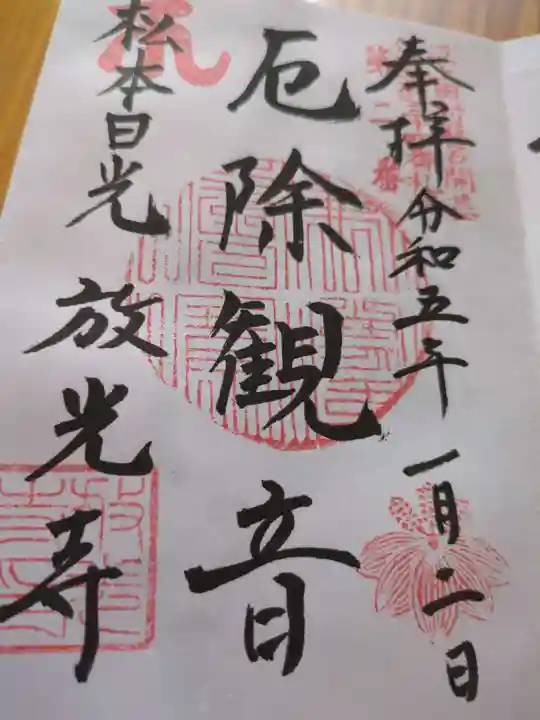 奉拝 令和五年 一月二日
厄除観音
松本日光 放光寺